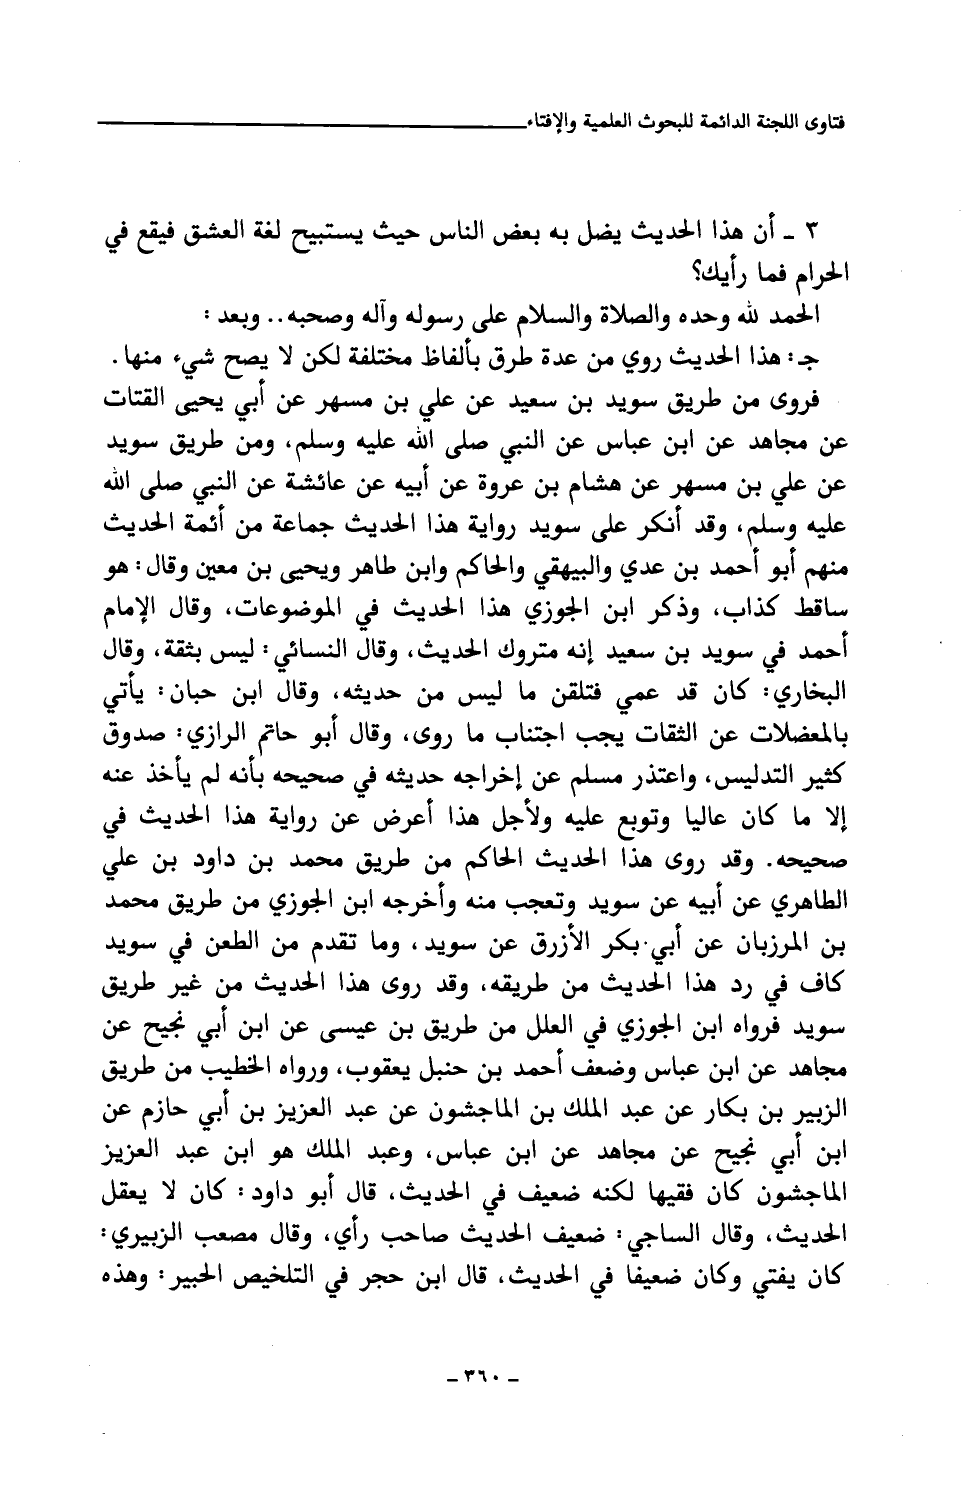 فتاوى اللجنة الدائمة للبحوث العلمية والإفتاء
٣ ـ أن هذا الحديث يضل به بعض الناس حيث يستبيح لغة العشق فيقع في
الحرام فما رأيك؟
الحمد لله وحده والصلاة والسلام على رسوله وآله وصحبه.. وبعد :
جـ: هذا الحديث روي من عدة طرق بألفاظ مختلفة لكن لا يصح شيء منها.
فروى من طريق سويد بن سعيد عن علي بن مسهر عن أبي يحيى القتات
عن مجاهد عن ابن عباس عن النبي صلى الله عليه وسلم، ومن طريق سويد
عن علي بن مسهر عن هشام بن عروة عن أبيه عن عائشة عن النبي صلى الله
عليه وسلم، وقد أنكر على سويد رواية هذا الحديث جماعة من أئمة الحديث
منهم أبو أحمد بن عدي والبيهقي والحاكم وابن طاهر ويحيى بن معين وقال: هو
ساقط كذاب، وذكر ابن الجوزي هذا الحديث في الموضوعات، وقال الإمام
أحمد في سويد بن سعيد إنه متروك الحديث، وقال النسائي: ليس بثقة، وقال
البخاري: كان قد عمي فتلقن ما ليس من حديثه، وقال ابن حبان: يأتي
بالمعضلات عن الثقات يجب اجتناب ما روى، وقال أبو حاتم الرازي: صدوق
كثير التدليس، واعتذر مسلم عن إخراجه حديثه في صحيحه بأنه لم يأخذ عنه
إلا ما كان عاليا وتوبع عليه ولأجل هذا أعرض عن رواية هذا الحديث في
صحيحه. وقد روى هذا الحديث الحاكم من طريق محمد بن داود بن علي
الظاهري عن أبيه عن سويد وتعجب منه وأخرجه ابن الجوزي من طريق محمد
بن المرزبان عن أبي بكر الأزرق عن سويد، وما تقدم من الطعن في سويد
كاف في رد هذا الحديث من طريقه، وقد روى هذا الحديث من غير طريق
سويد فرواه ابن الجوزي في العلل من طريق بن عيسى عن ابن أبي نجيح عن
مجاهد عن ابن عباس وضعف أحمد بن حنبل يعقوب، ورواه الخطيب من طريق
الزبير بن بكار عن عبد الملك بن الماجشون عن عبد العزيز بن أبي حازم عن
ابن أبي نجيح عن مجاهد عن ابن عباس، وعبد الملك هو ابن عبد العزيز
الماجشون كان فقيها لكنه ضعيف في الحديث، قال أبو داود: كان لا يعقل
الحديث، وقال الساجي: ضعيف الحديث صاحب رأي، وقال مصعب الزبيري:
كان يفتي وكان ضعيفا في الحديث، قال ابن حجر في التلخيص الحبير: وهذه
ـ ٣٦٠ ـ